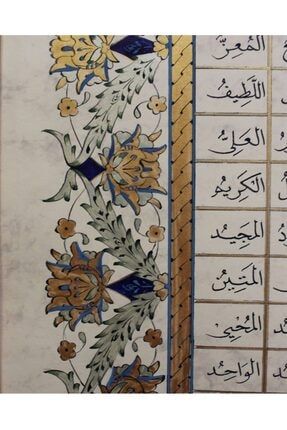 المُعِزُّ
اللَّطِيفُ
العَلِيُّ
الكَرِيمُ
المَجِيدُ
المَتِينُ
المُحْيِي
الوَاحِدُ